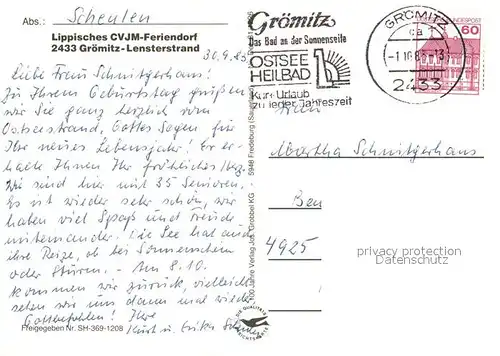 Abs.: Scheulen
Lippisches CVJM-Feriendorf
2433 Grömitz-Lensterstrand
30.9.83
Liebe Frau Schnitgerhans!
Zu Ihrem Geburtstag grüßen
wir Sie ganz herzlich vom
Ostseestrand, Gottes Segen für
Ihr neues Lebensjahr! Er er-
halte Ihnen Ihr fröhliches Herz.
Wir sind hier mit 35 Senioren.
Es ist wieder sehr schön, wir
haben viel Spaß und Freude
miteinander. Die See hat auch
ihre Reize, ob bei Sonnenschein
oder Sturm. - Am 8.10.
kommen wir zurück, vielleicht
sehen wir uns dann mal wieder
Gottbefohlen! Ihre
Kurt u. Erika
Freigegeben Nr. SH-369-1208
100 Jahre Verlag
5948
DIE QUALITÄTS
Grömitz
Das Bad an der Sonnenseite
OSTSEE
HEILBAD
Kur+Urlaub
zu jeder Jahreszeit
GRÖMITZ
-1.10.83-13
2433
BUNDESPOST
60
Martha Schnitgerhans
4925
privacy protection
Datenschutz